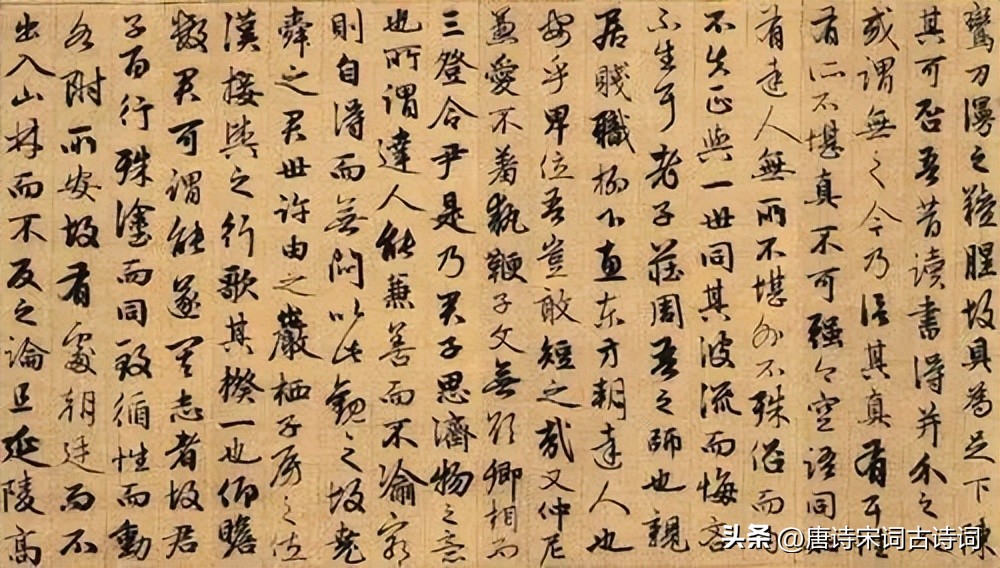 鸞刀漫之羶腥故具為足下陳
其可否吾昔讀書得并介之
或謂無之今乃信其真有耳性
有所不堪真不可强今空語同知
有達人無所不堪外不殊俗而内
不失正與一世同其波流而悔吝
不生耳老子莊周吾之師也親
居賤職柳下惠東方朔達人也
安乎卑位吾豈敢短之哉又仲尼
兼愛不羞執鞭子文無欲卿相而
三登令尹是乃君子思濟物之意
也所謂達人能兼善而不渝窮
則自得而無悶以此觀之故堯
舜之君世許由之巖栖子房之佐
漢接輿之行歌其揆一也仰瞻
數君可謂能遂其志者故君
子百行殊塗而同致循性而動
各附所安故有處朝廷而不
出入山林而不反之論且延陵高
头条 @唐诗宋词古诗词